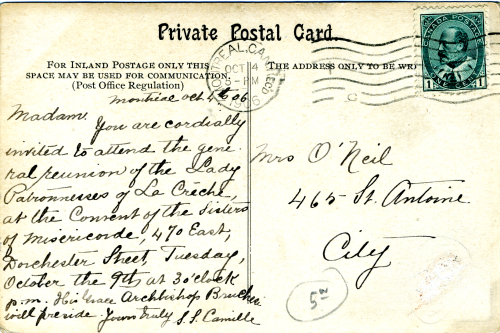 Private Postal Card.
FOR INLAND POSTAGE ONLY THIS
SPACE MAY BE USED FOR COMMUNICATION.
(Post Office Regulation)
THE ADDRESS ONLY TO BE WRI
MONTREAL, CANADA
OCT 4
5-PM
CANADA POSTAGE
1 1
Montréal Oct 4th 06
Madam
You are cordially
invited to attend the gene
ral reunion of the Lady
Patronnesses of La Crèche,
at the Convent of the Sisters
of Misericorde, 470 East,
Dorchester Street, Tuesday,
October the 9th at 3 o'clock
p.m. His Grace Archbishop Bruchesi
will preside. Yours truly S. S. Camille
Mrs O'Neil
465 St. Antoine
City